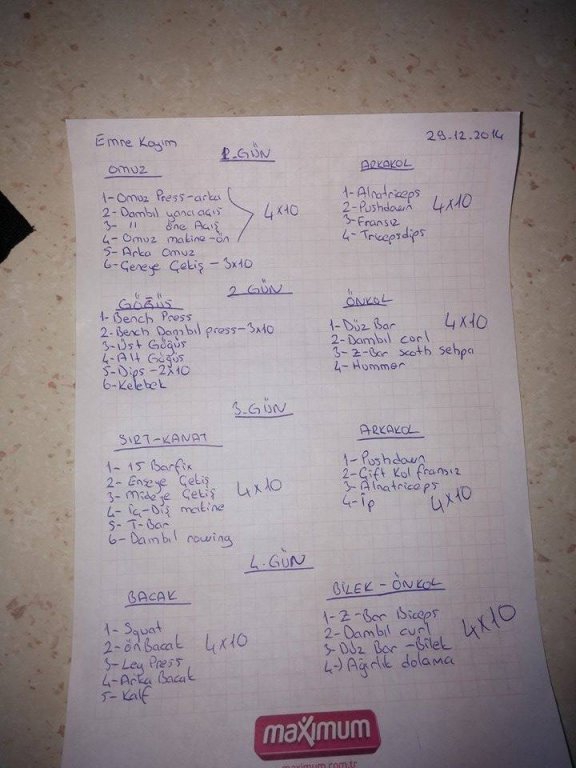 Emre Kayım
29.12.2014
1.GÜN
OMUZ
1- Omuz Press-arka
2- Dambıl yana açış
3- " öne Açış
4- Omuz makine-ön
5- Arka Omuz
6- Çeneye Çekiş - 3x10
4x10
ARKAKOL
1- Alnatriceps
2- Pushdawn
3- Fransız
4- Tricepsdips
4x10
2.GÜN
GÖĞÜS
1- Bench Press
2- Bench Dambıl press-3x10
3- Üst Göğüs
4- Alt Göğüs
5- Dips - 2x10
6- Kelebek
ÖNKOL
1- Düz Bar
2- Dambıl curl
3- Z-Bar scoth sehpa
4- Hummer
4x10
3.GÜN
SIRT-KANAT
1- 15 Barfix
2- Enseye Çekiş
3- Mideye Çekiş
4- iç-Dış makine
5- T-Bar
6- Dambıl rowing
4x10
ARKAKOL
1- Pushdawn
2- Çift Kol fransız
3- Alnatriceps
4- İp
4x10
4.GÜN
BACAK
1- Squat
2- ön Bacak
3- Ley Press
4- Arka Bacak
5- Kalf
4x10
BİLEK-ÖNKOL
1- Z-Bar Biceps
2- Dambıl curl
3- Düz Bar-Bilek
4-) Ağırlık dolama
4x10
maximum
maximum.com.tr